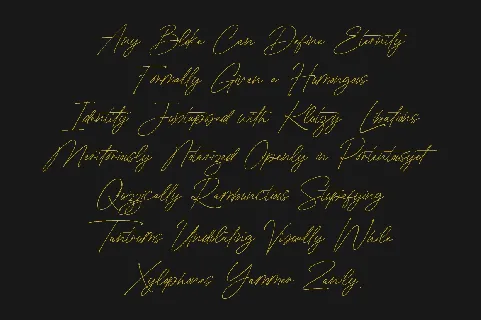 Any Bloke Can Define Eternity
Formally Given a Humongous
Identity Juxtaposed with Klutzy Libations
Meritoriously Notarized Openly in
Quizzically Rambunctious Stupefying
Tantrums Undulating Visually While
Xylophones Yammer Zanily.